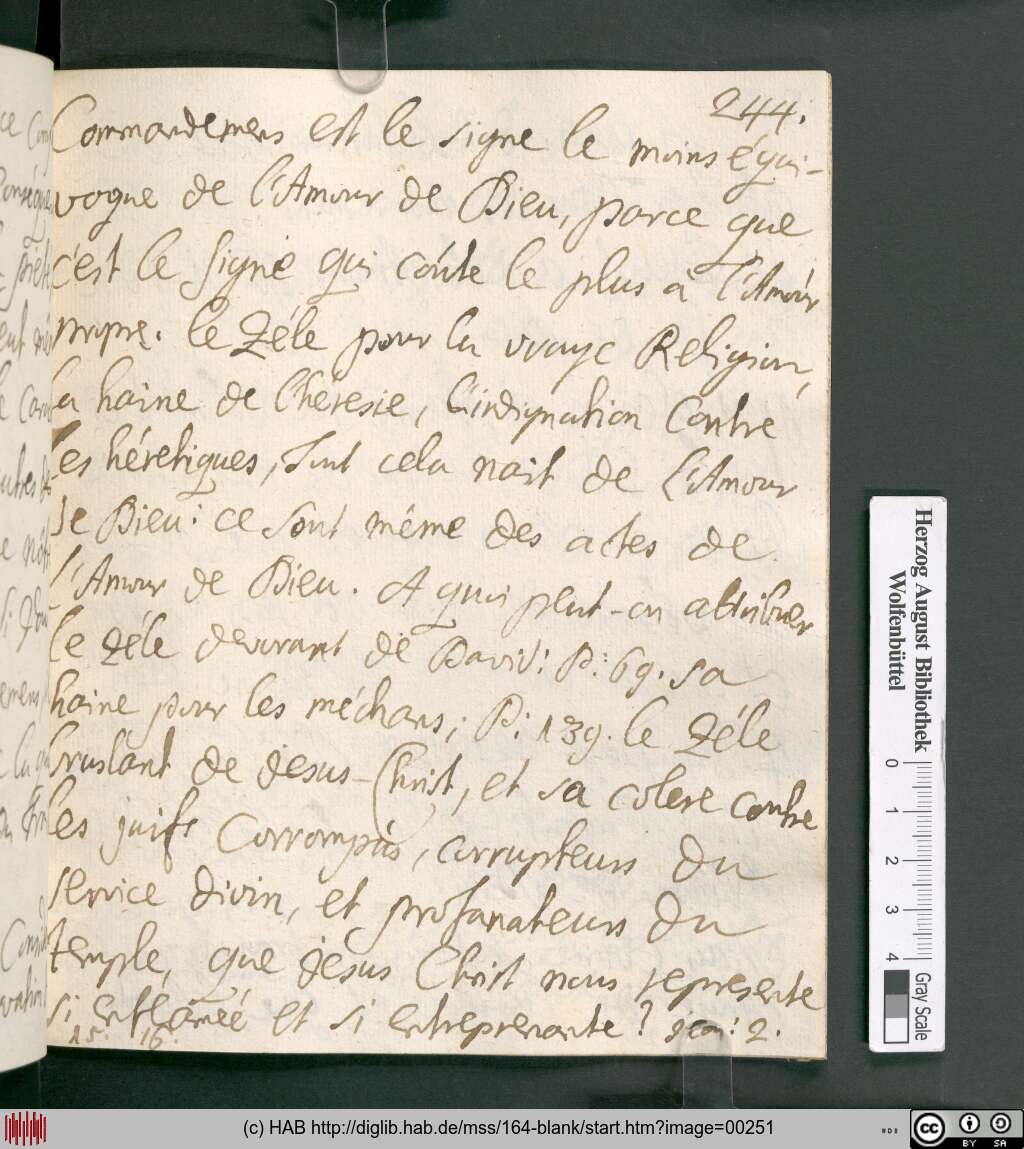 244.
Commandemens est le signe le moins équi-
voque de l'Amour de Dieu, parce que
c'est le signe qui coûte le plus à l'Amour
propre. le Zéle pour la vraye Religion,
la haine de l'héresie, l'indignation contre
les hérétiques, tout cela nait de l'Amour
de Dieu: ce sont même des actes de
l'Amour de Dieu. A qui peut-on attribuer
le zéle devorant de David: P: 69. sa
haine pour les méchans; P: 139. le Zéle
brulant de Jesus-Christ, et sa colere contre
les juifs Corrompus, corrupteurs du
service divin, et profanateurs du
temple, que Jesus Christ nous represente
si enflamée et si entreprenante? jean: 2.
15. 16.
Herzog August Bibliothek
Wolfenbüttel
0 1 2 3 4
Gray Scale
(c) HAB http://diglib.hab.de/mss/164-blank/start.htm?image=00251
cc BY SA